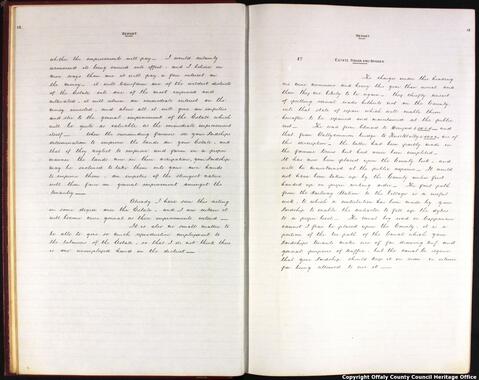 REPORT
whether the improvements will pay — I would certainly
recommend its being carried into effect — and I believe in
more ways than one it will pay, a fair interest on
the money. it will transform one of the wildest districts
of the Estate into one of the most improved and
cultivated, it will return an immediate interest on the
money invested, and above all it will give an impetus
and stir to the general improvement of the Estate which
will be quite as valuable as the immediate improvement
itself — When the surrounding farmers see your Lordships
determination to improve the lands on your Estate, and
that if they neglect to improve and farm in a proper
manner the lands now in their occupation, your Lordship
may be induced to take them into your own hands
to improve them, an impetus of the strongest nature
will thus force on general improvement amongst the
Tenantry —
Already I have seen this acting
in some degree over the Estate, and I am certain it
will become more general as these improvements extend —
It is also no small matter to
be able to give so much reproductive employment to
the labourers of the Estate, so that I do not think there
is one unemployed hand in the district —
REPORT
17 ESTATE ROADS AND BRIDGES
The charges under this heading
are more numerous and heavy this year than usual and
than they are likely to be again — they chiefly consist
of putting several roads hitherto not on the County
into that state of repair which will enable them
hereafter to be repaired and maintained at the public
cost. The road from Cloncon to
that from Ballycommon bridge to
this description — the latter had been partly made in
the famine times but had never been completed —
It has now been placed upon the County list, and
will be maintained at the public expense. It would
not have been taken up by the County unless first
handed up in proper working order — The foot path
from the Railway Station to the Cottage is a useful
work, to which a contribution has been made by your
Lordship to enable the contractor to fill up the dykes
to a proper level — The canal bog road in Cappancur
cannot I fear be placed upon the County, it is a
portion of the tow path of the Canal which your
Lordships tenants make use of for drawing turf and
general purposes of traffic, but the Canal Co require
that your Lordship should keep it in order in return
for being allowed to use it —
Copyright Offaly County Council Heritage Office